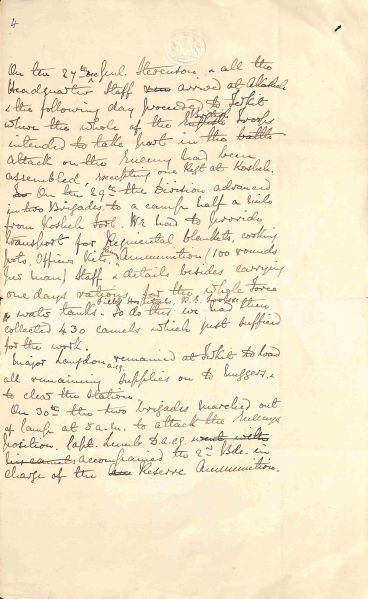 4
On the 27th Dec Genl. Stevenson & all the
Headquarter Staff arrived at Akasheh
& the following day proceeded to
where the whole of the British Troops
intended to take part in the battle
attack on the Enemy had been
assembled, excepting one Regt at Kosheh.
On the 29th the Division advanced
in two Brigades to a camp half a mile
from Kosheh Fort. We had to provide
transport for Regimental blankets, cooking
pots, Officers Kits, Ammunition (100 rounds
per man) Staff & details besides carrying
one days rations for the whole force
Field Hospitals, R.E. Tools &c
& water tanks. To do this we had then
collected 430 camels which just sufficed
for the work.
Major Langdon remained at to load
all remaining supplies on to nuggers, &
to clear the station.
On 30th the two brigades marched out
of camp at 5 a.m. to attack the enemys
position. Capt. Lumb D.A.C.G. went with
his camels accompanied the 2nd Bde. in
charge of the Reserve Ammunition.